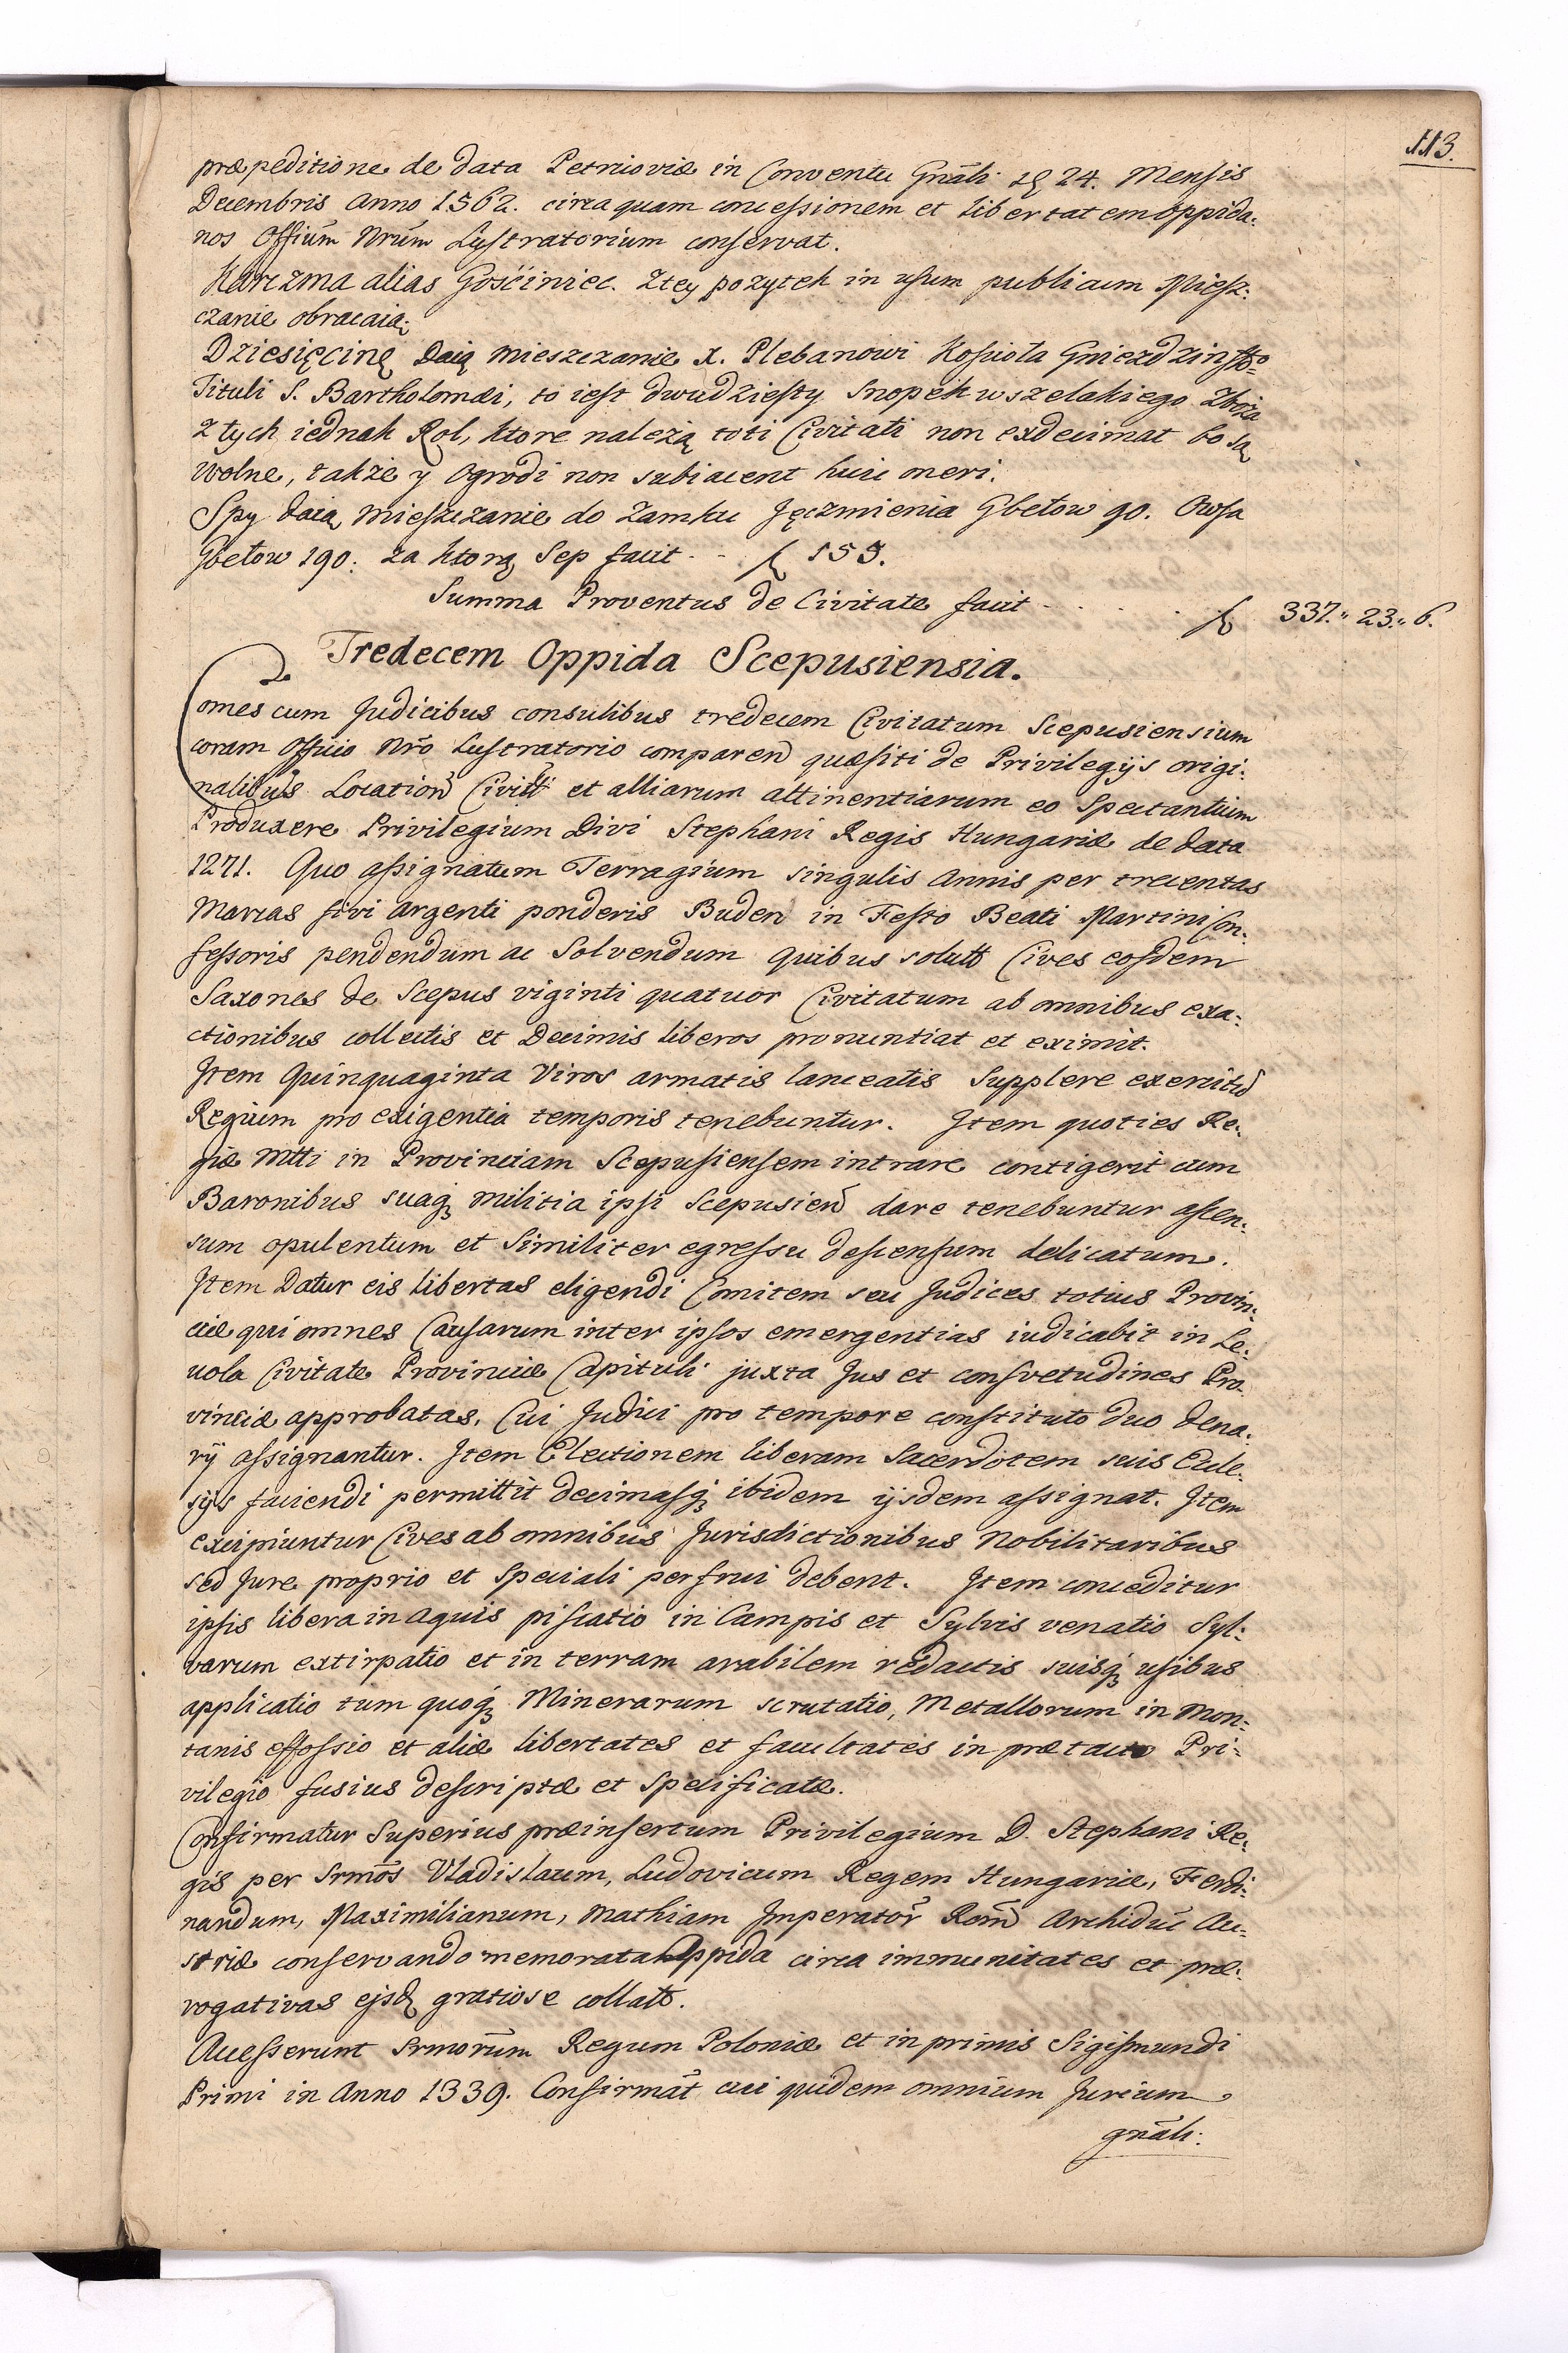 113.
præpeditione de data Petricoviæ in Conventu Gnãli 24. Mensis
Decembris Anno 1562. circa quam concessionem et libertatem Oppida:
nos Offium Nrũm Lustratorium conservat.
Karczma alias Gościniec. Z tey pozytek in usum publicum Miesz:
czanie obracaią.
Dziesięcinę Daią Mieszczanie X. Plebanowi Kosciola Gniezdzinsko
Tituli S. Bartholomæi, to iest dwudziesty Snopek wszelakiego Zboża
z tych iednak Rol, ktore należą toti Civitati non exdecimat bo są
wolne, także y Ogrodi non subiacent huic oneri.
Spy daią Mieszczanie do Zamku Jęczmienia Gbełow 90. Owsa
Gbełow 190. za ktorą Sep facit - - f 155.
Summa Proventus de Civitate facit - . . . . f 337." 23." 6.
Tredecem Oppida Scepusiensia.
Comes cum Judicibus consulibus tredecem Civitatum Scepusiensium
coram Officio Nrõ Lustratorio comparen quæsiti de Privilegijs origi:
nalibus Location Civitt et alliarum attinentiarum eo Spectantium
Produxere Privilegium Divi Stephani Regis Hungariæ de data
1271. Quo assignatum Terragium singulis Annis per trecentas
Marcas fivi Argenti ponderis Buden in Festo Beati Martini Con:
fessoris pendendum ac Solvendum quibus solutt Cives eosdem
Saxones de Scepus viginti quatuor Civitatum ab omnibus exa:
ctionibus collectis et Decimis liberos pronuntiat et eximit.
Item Quinquaginta Viros armatis lanceatis Supplere exercitũ
Regium pro exigentia temporis tenebuntur. Item quoties Re:
giæ Mtti in Provinciam Scepusiensem intrare contigerit cum
Baronibus suaq3 militia ipsi Scepusien dare tenebuntur ascen:
sum opulentum et Similiter egressu descensum delicatum.
Item Datur eis libertas eligendi Comitem seu Judices totius Provin:
ciæ qui omnes Causarum inter ipsos emergentias iudicabit in Le:
uola Civitate Provinciæ Capituli juxta Jus et consvetudines Pro:
vinciæ approbatas. Cui Judici pro tempore constituto duo dena:
rij assignantur. Item Electionem liberam Sacerdotem suis Eccle:
sijs faciendi permittit decimasq3 ibidem ijsdem assignat. Item
excipiuntur Cives ab omnibus Jurisdictionibus Nobilitaribus
sed Jure proprio et Speciali perfrui debent. Item conceditur
ipsis libera in Aquis piscatio in Campis et Sylvis venatio Syl:
varum extirpatio et in terram arabilem redactis suisq3 usibus
applicatio tum quoq3 Minerarum scrutatio, Metallorum in Mon:
tanis effossio et aliæ libertates et facultates in prætacto Pri:
vilegio fusius descriptæ et Specificatæ.
Confirmatur Superius præinsertum Privilegium D. Stephani Re:
gis per Srmõs Vladislaum, Ludovicum Regem Hungariæ, Ferdi:
nandum, Maximilianum, Mathiam Imperator Rom Archiduc Au:
striæ conservando memorata Oppida circa immunitates et præ:
rogativas ejsd gratiose collatt.
Accesserunt Srmorũm Regum Poloniæ et in primis Sigismundi
Primi in Anno 1339. Confirmãt cui quidem omnium Jurium
gnãli: